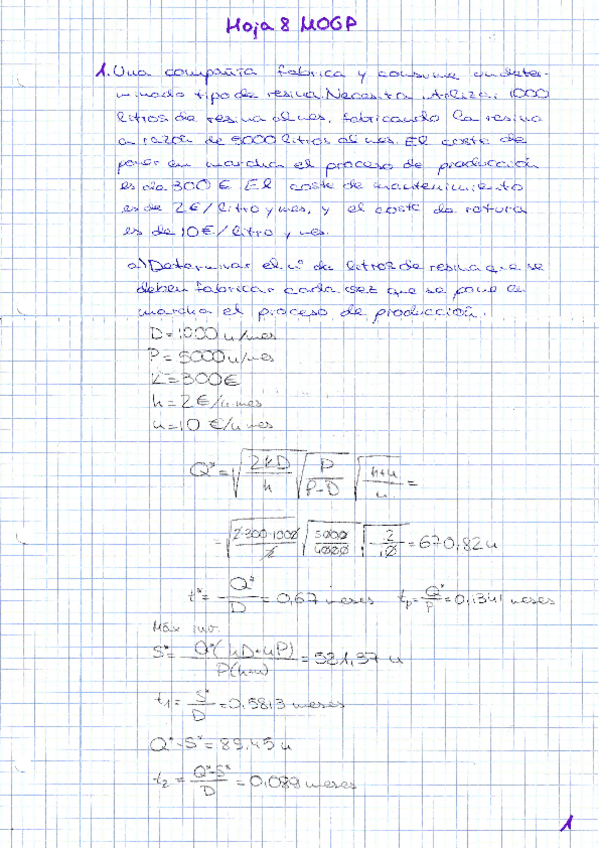 Hoja 8 MOGP
1. Una compañía fabrica y consume un deter-
minado tipo de resina. Necesita utilizar 1000
litros de resina al mes, fabricando la resina
a razón de 5000 litros al mes. El coste de
poner en marcha el proceso de producción
es de 300 €. El coste de mantenimiento
es de 2€/litro y mes, y el coste de rotura
es de 10€/litro y mes.
a) Determinar el nº de litros de resina que se
deben fabricar cada vez que se pone en
marcha el proceso de producción.
D=1000 u/mes
P=5000 u/mes
K=300€
h=2€/u mes
u=10 €/u mes
Q* = √(2KD/h) √(P/(P-D)) √((h+u)/u) =
= √(2·300·1000/2) √(5000/4000) = 670,82 u
t* = Q*/D = 0,67 meses tp = Q*/P = 0,1341 meses
Máx inv.
S* = = 521,37 u
t1 = S*/D = 0,5813 meses
Q*-S* = 89,45 u
t2 = (Q*-S*)/D = 0,089 meses
1